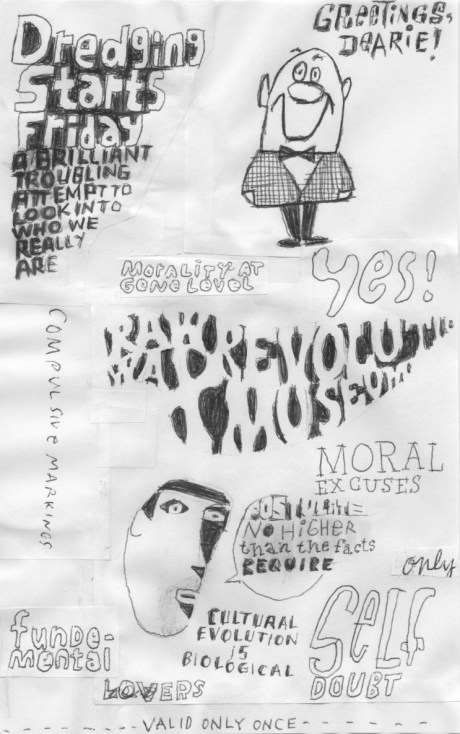 Dredging
Starts
Friday
A BRILLIANT
TROUBLING
ATTEMPT TO
LOOK INTO
WHO WE
REALLY
ARE
GREETINGS,
DEARIE!
MORALITY AT
GENE LEVEL
yes!
COMPULSIVE MARKINGS
REVOLUTI
MUSEUM
MORAL
EXCUSES
POSTULATE
NO HIGHER
than the facts
REQUIRE
only
funde-
mental
CULTURAL
EVOLUTION
is
BIOLOGICAL
SELF
DOUBT
LOVERS
VALID ONLY ONCE